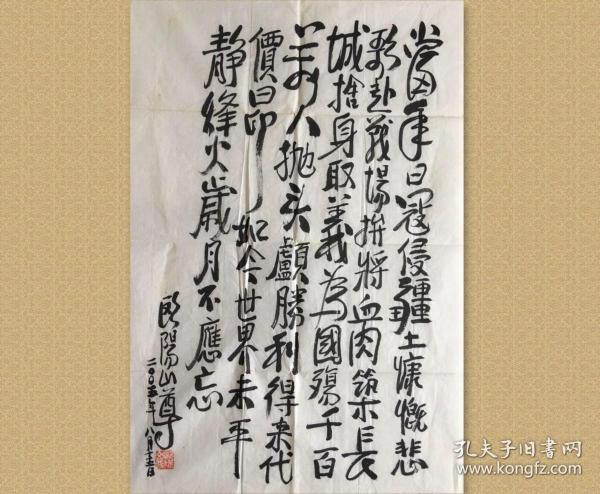 當年日寇侵疆土慷慨悲
歌赴戰場拚將血肉筑長
城捨身取義為國殤千百
萬人抛头顱勝利得来代
價昂如今世界未平
靜烽火歲月不應忘
欧陽山尊
二〇〇五年八月十五日
孔夫子旧书网
www.kongfz.com